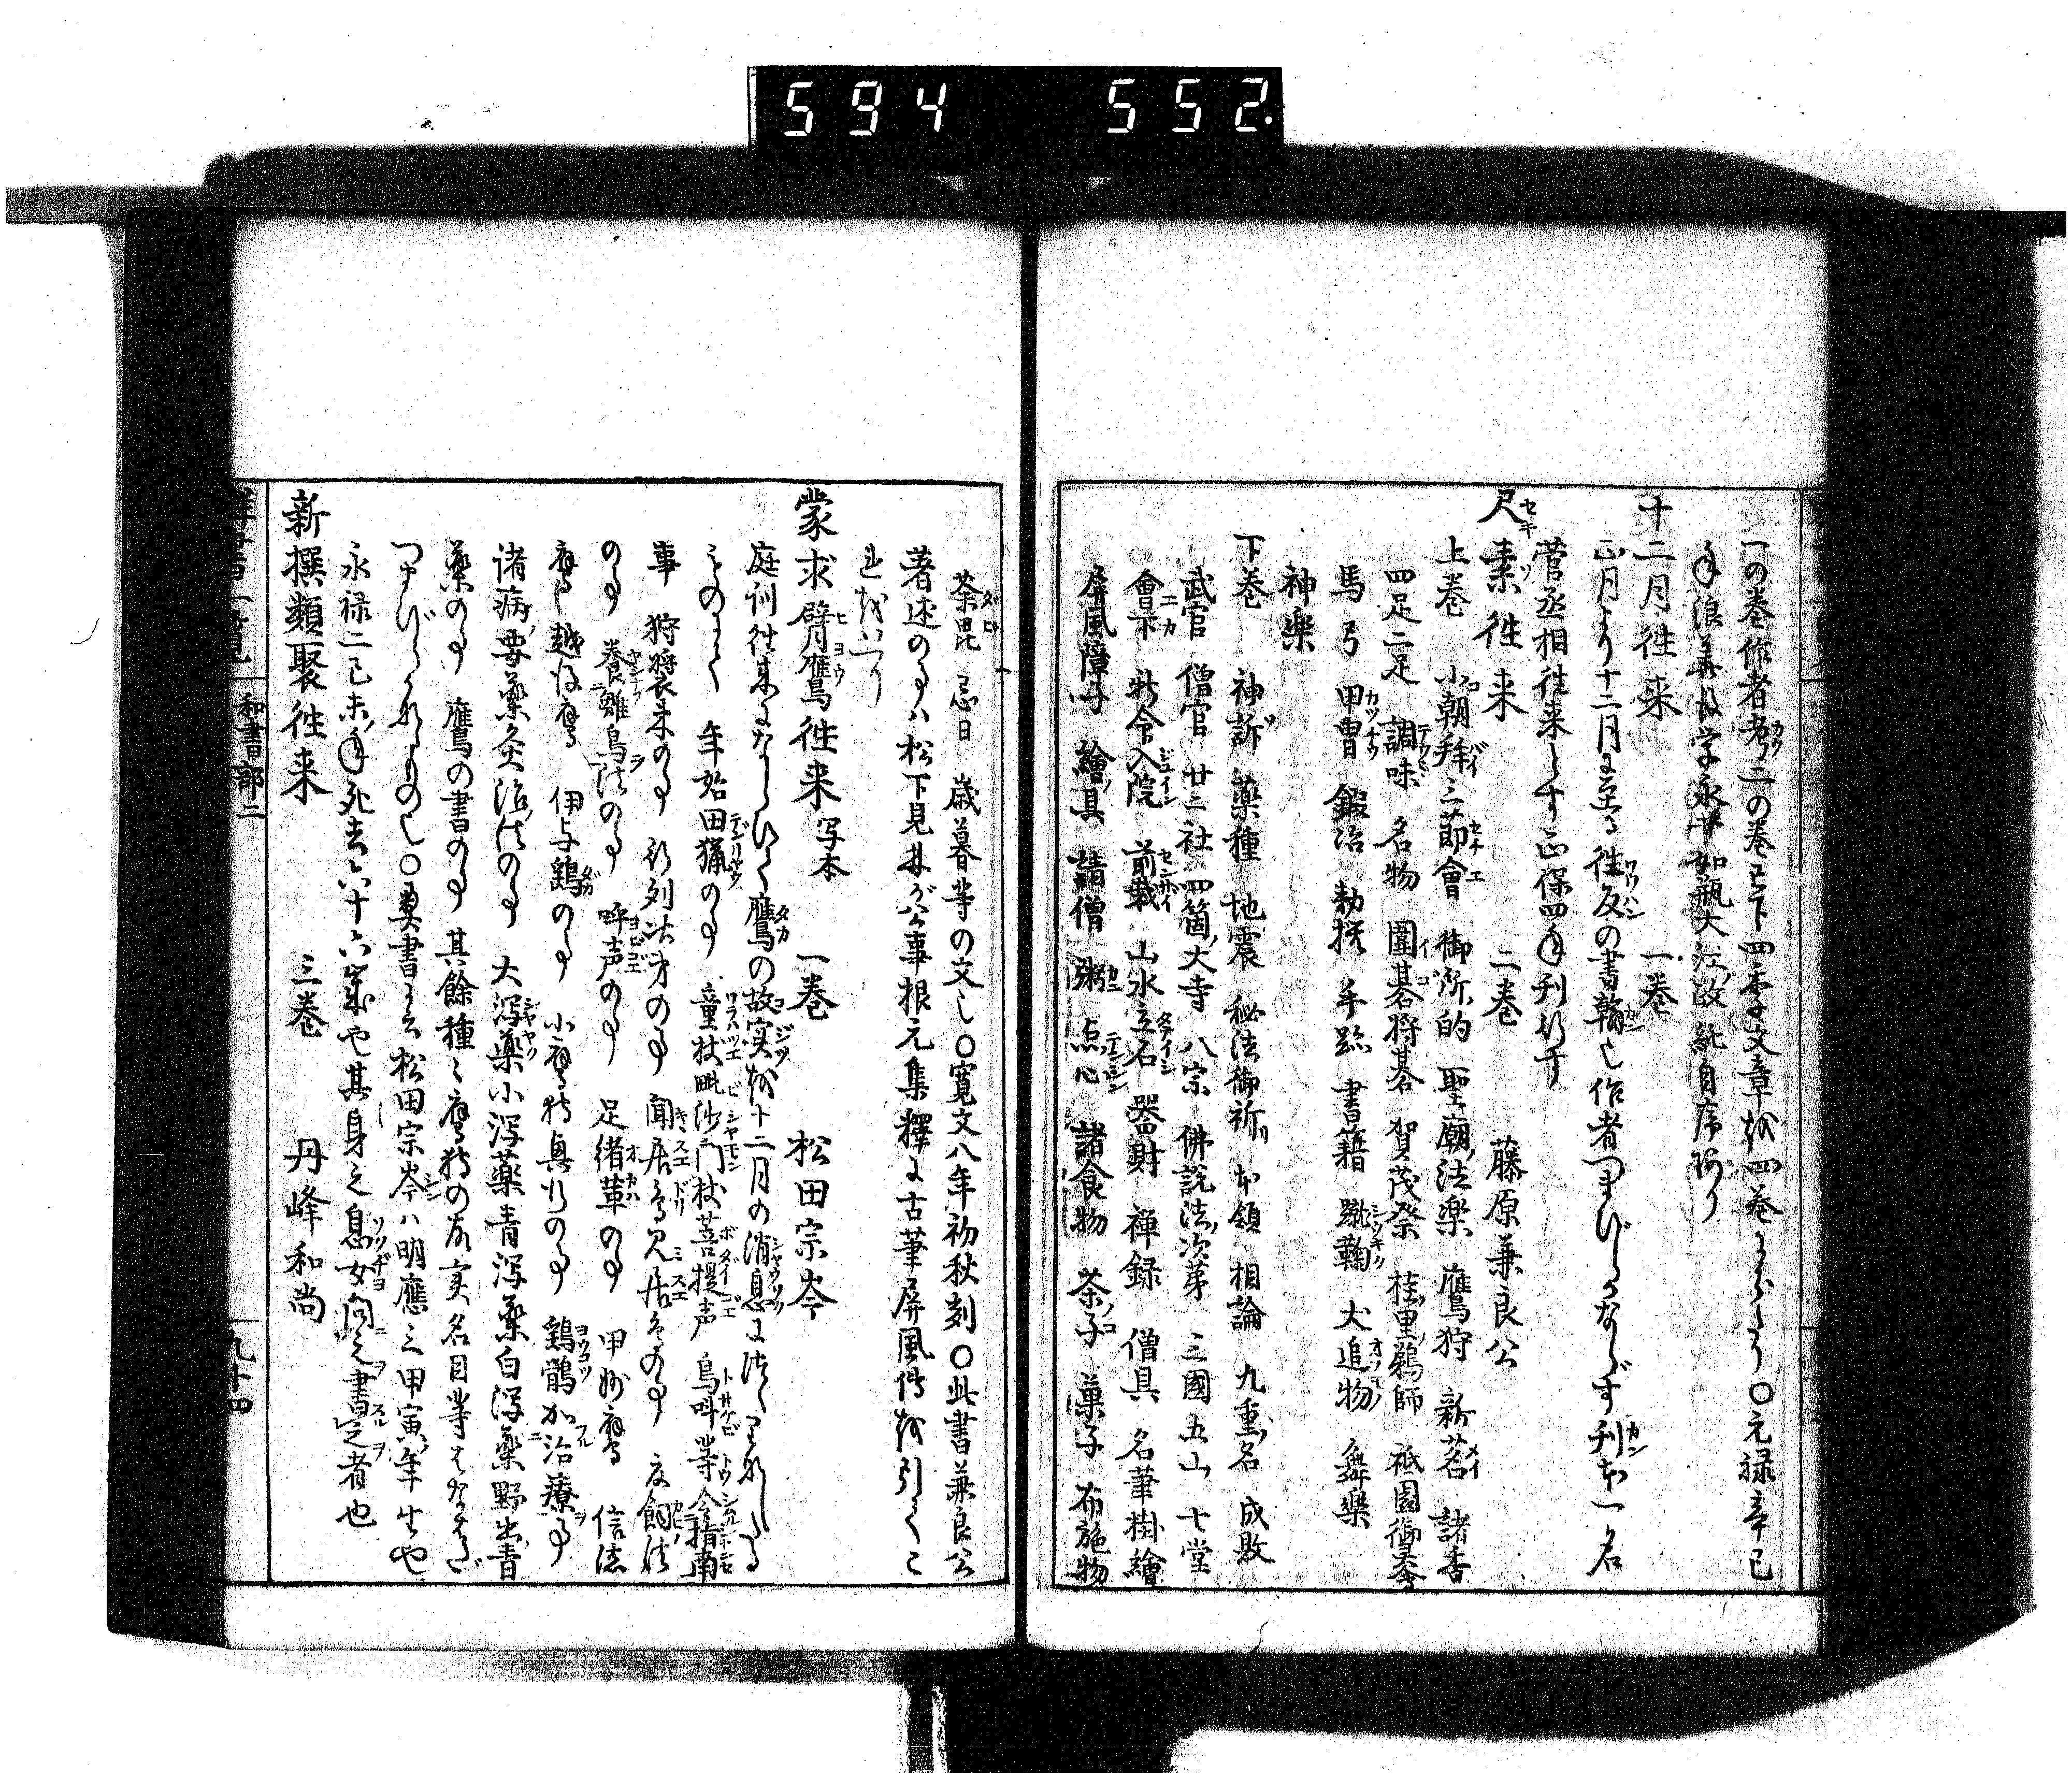 594 552.
一の巻作者考二の巻已下四季文章を四巻にわかてり〇元禄辛巳
年浪華
十二月往来 一巻
正月より十二月に至る往反の書翰也作者つまびらかならず刊本一名
菅丞相往来とす正保四年刊行す
尺素往来 二巻 藤原兼良公
上巻 小朝拜 三節會 御所的 聖廟法楽 鷹狩 新茗 諸香
四足二足 調味 名物 圍碁将碁 賀茂祭 桂里鵜師 祇園御霊會
馬弓 甲冑 鍛冶 勅撰 手跡 書籍 蹴鞠 犬追物 舞樂
神樂
下巻 神訴 薬種 地震 秘法御祈 本領相論 九重名 成敗
武官 僧官 廿二社 四箇大寺 八宗 佛説法次第 三國五山 七堂
會下 新命入院 前栽 山水立石 器財 禅録 僧具 名筆掛繪
屏風障子 繪具 請僧 粥 点心 諸食物 茶子 菓子 布施物
茶毘 忌日 歳暮等の文也〇寛文八年初秋刻〇此書兼良公
著述の事ハ松下見林が公事根元集釋に古筆屏風傳を引てこ
れをいへり
蒙求臂鷹往来 写本 一巻 松田宗岑
庭訓往来にならひて鷹の故実を十二月の消息につくりなしたる
ものなり 年始田猟の事 童杖毗沙門杖菩提声 鳥叫等令指南
事 狩将衣束の事 行列次才の事 聞居鳥見居鳥の事 夜飼法
の事 養雛鳥法の事 呼声の事 足緒革の事 甲州鷹 信濃
鷹 越後鷹 伊与鷂の事 小鷹狩具以の事 鷂鶻加治療事
諸病要薬灸治法の事 大瀉薬小瀉薬青瀉薬白瀉薬野出青
薬の事 鷹の書の事 其餘種々鷹狩の故実名目等
つまびらかなるもの也〇奥書に云松田宗岑ハ明應三甲寅年生也
永禄二己未年死去六十六歳也其身之息女向之書之者也
新撰類聚往来 三巻 丹峰和尚
群書一覧 和書部二 九十四